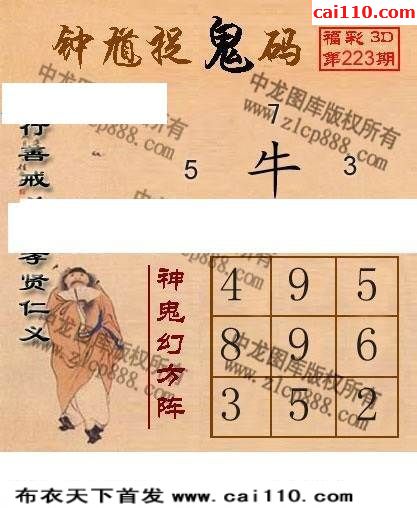 cai110.com
钟馗捉鬼码
福彩3D
第223期
中龙图库版权所有
www.zlcp888.com
行善戒
7
5
牛
3
孝贤仁义
神鬼幻方阵
4 9 5
8 9 6
3 5 2
中龙图库版权所有
www.zlcp888.com
布衣天下首发 www.cai110.com